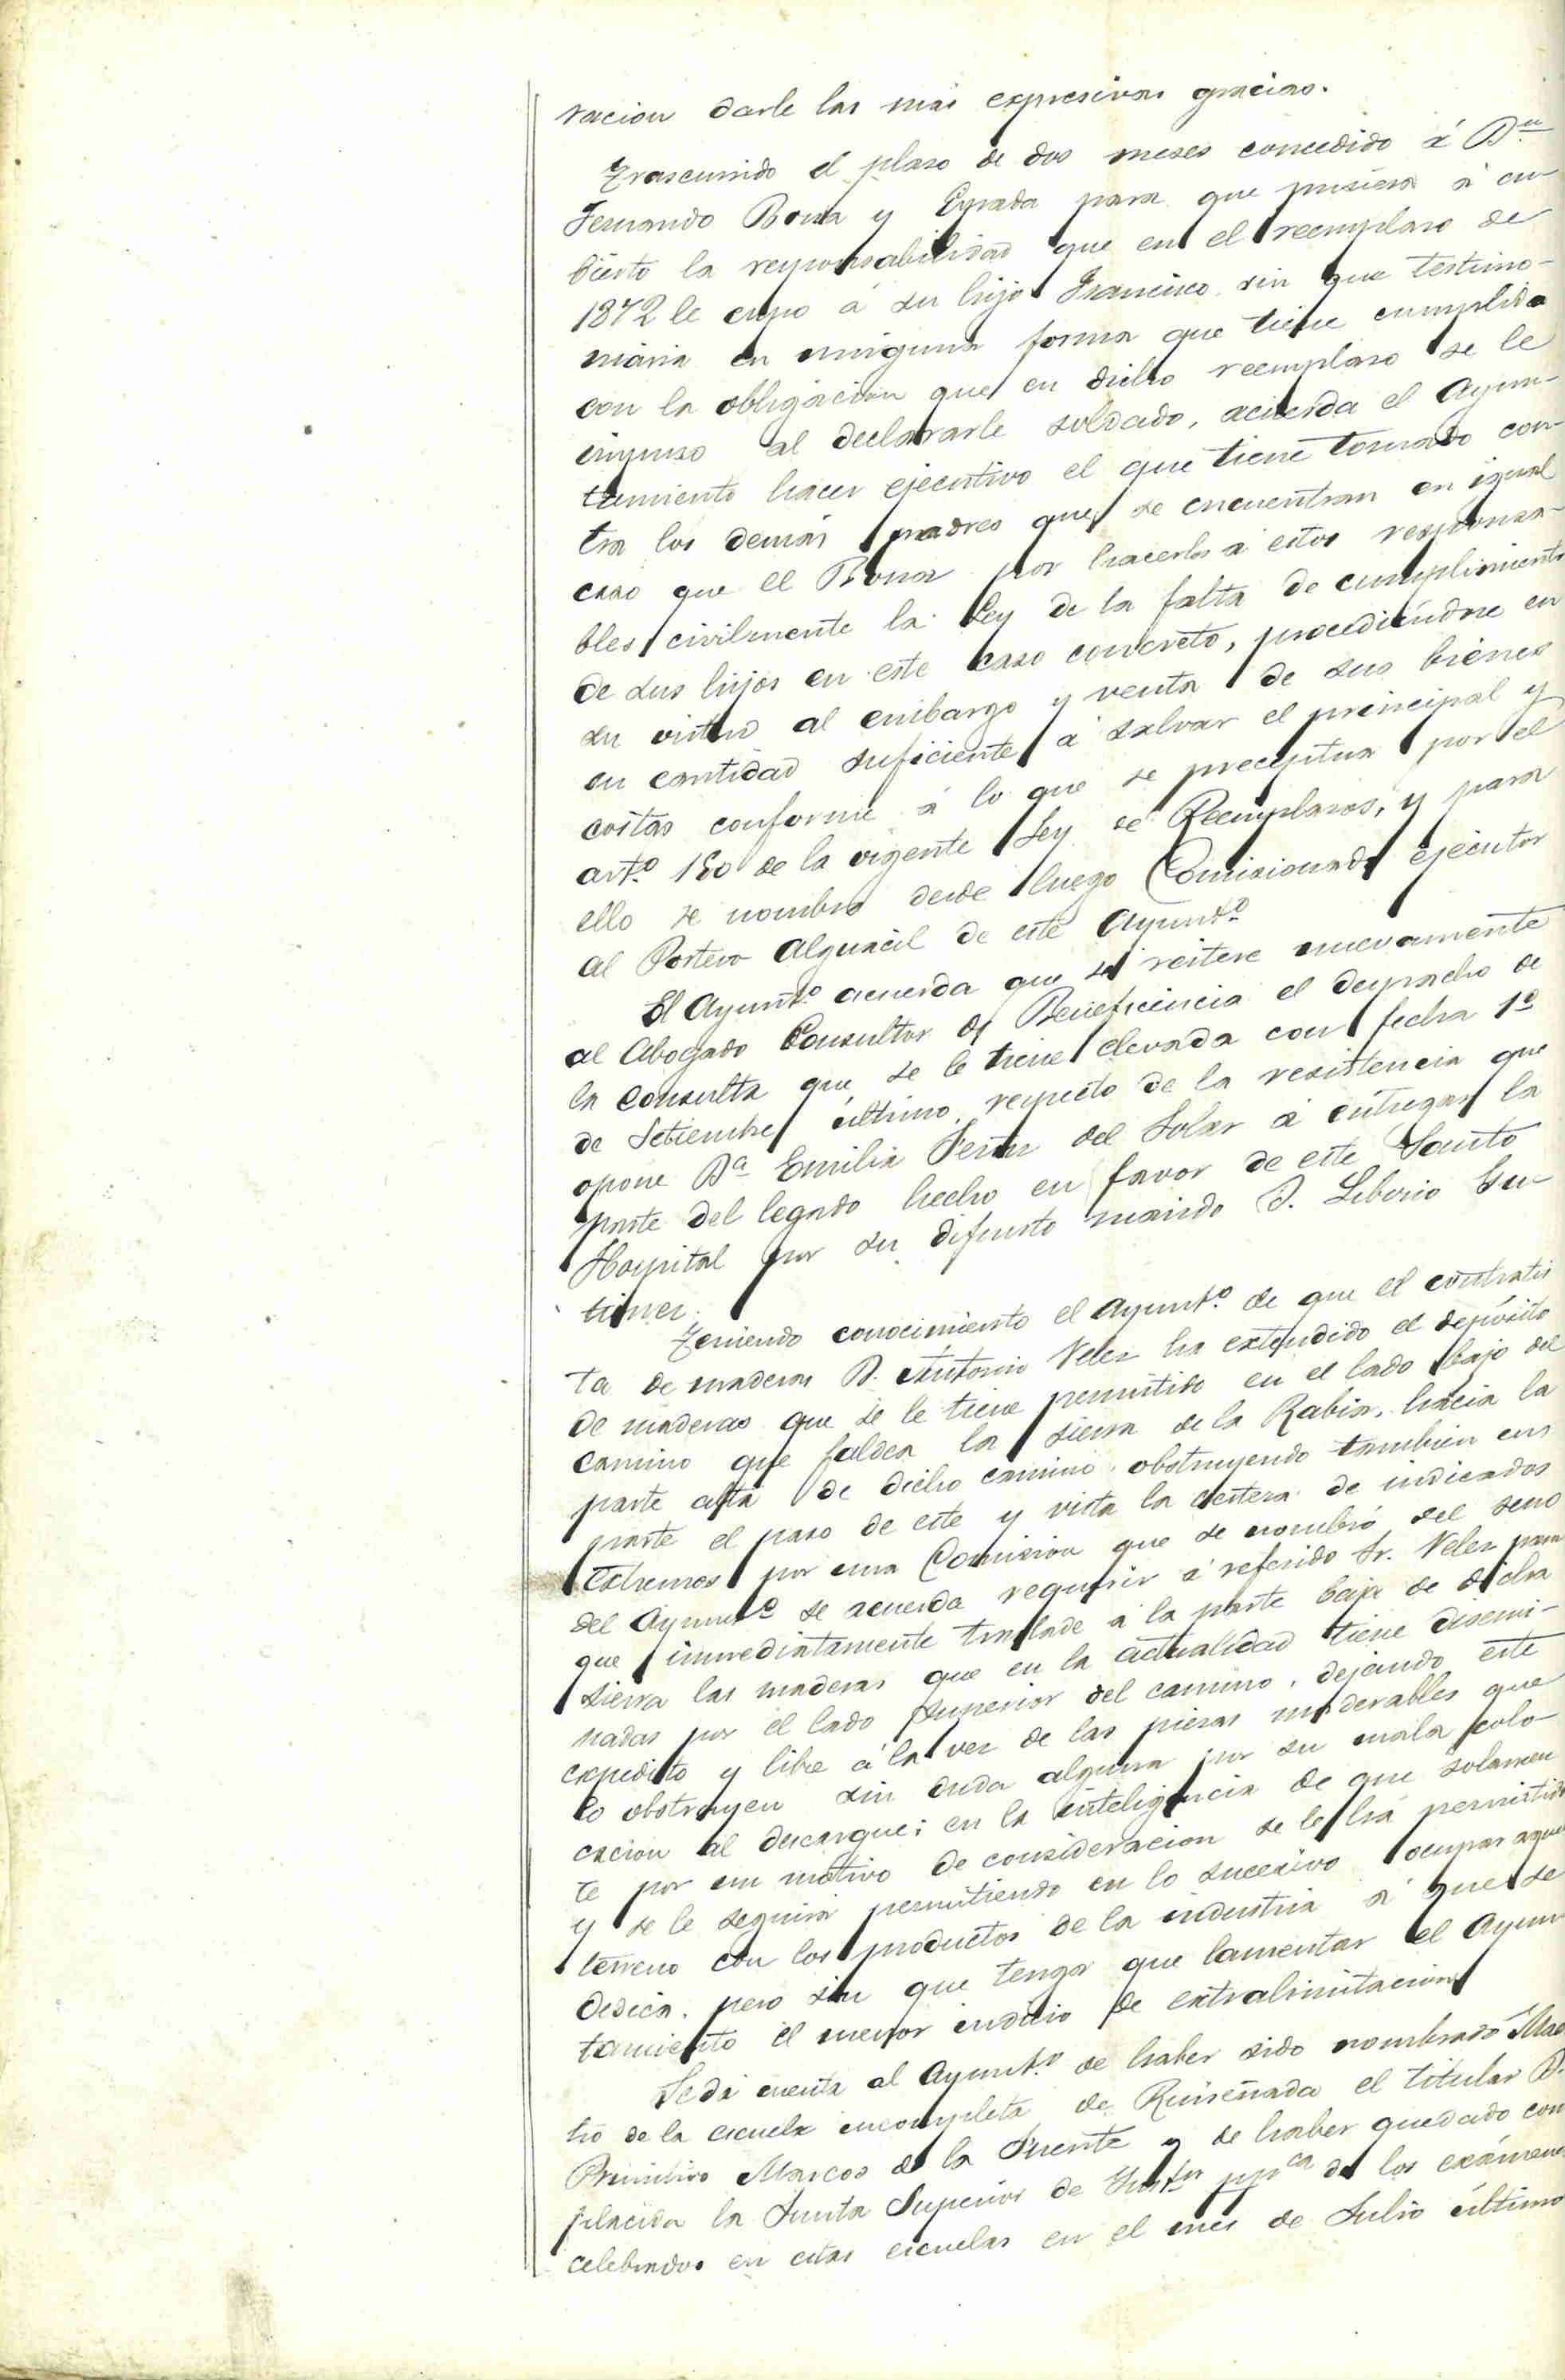 racion darle las más expresivas gracias.
Trascurrido el plaso de dos meses concedido á Dn
Fernando Borra y para que pusiera á cu-
bierto la responsabilidad que en el reemplaso de
1872 le cupo á su hijo Francisco, sin que testimo-
niaria en ninguna forma que tiene cumplida
con la obligacion que en dicho reemplaso se le
impuso al declararle soldado, acuerda el Ayun-
tamiento hacer ejecutivo el que tiene tomado con-
tra los demás padres que se encuentran en igual
caso que el por hacerlos á estos responsa-
bles civilmente la Ley de la falta de cumplimiento
de sus hijos en este caso concreto, procediéndose en
su virtud al embargo y venta de sus bienes
en cantidad suficiente á salvar el principal y
costas conforme á lo que se preceptua por el
art.º 180 de la vigente Ley de Reemplasos, y para
ello se nombra desde luego Comisionado ejecutor
al Portero Alguacil de este Ayunt.º
El Ayunt.º acuerda que se reitere nuevamente
al Abogado Consultor de Beneficencia el despacho de
la consulta que se le tiene elevada con fecha 1º
de Setiembre último, respecto de la resistencia que
opone Dª Emilia del Solar á entregar la
parte del legado hecho en favor de este Santo
Hospital por su difunto marido D. Liborio Gu-
tierrez.
Teniendo conocimiento el Ayunt.º de que el contratis
ta de maderas D. Antonio Velez ha extendido el depósito
de maderas que se le tiene permitido en el lado bajo del
camino que faldea la sierra de la Rabia, hacia la
parte alta de dicho camino, obstruyendo tambien en
parte el paso de este y vista la certeza de indicados
extremos por una Comision que se nombró del seno
del Ayunt.º se acuerda requerir á referido Sr. Velez para
que inmediatamente traslade á la parte baja de dicha
sierra las maderas que en la actualidad tiene disemi-
nadas por el lado superior del camino, dejando este
expedito y libre á la vez de las piezas maderables que
lo obstruyen sin duda alguna por su mala colo-
cacion al descargue; en la inteligencia de que solamen
te por un motivo de consideracion se le ha permitido
y se le seguirá permitiendo en lo sucesivo ocupar aquel
terreno con los productos de la industria á que se
dedica, pero sin que tenga que lamentar el Ayun
tamiento el menor indicio de extralimitacion
Se dá cuenta al Ayunt.º de haber sido nombrado Maes
tro de la escuela incompleta de Ruiseñada el titular D.
Primitivo Marcos de la Fuente y de haber quedado com
placida la Junta Superior de Instⁿ ppᶜᵃ de los exámenes
celebrados en estas escuelas en el mes de Julio último